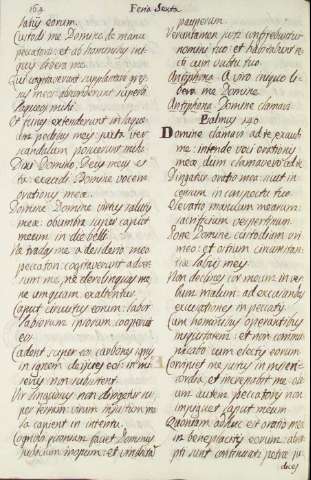 164
Feria Sexta
labiis eorum.
Custodi me Domine de manu
peccatoris: et ab hominibus ini-
quis eripe me.
Qui cogitaverunt supplantare gres-
sus meos: absconderunt superbi
laqueum mihi
Et funes extenderunt in laque-
um pedibus meis juxta iter
scandalum posuerunt mihi.
Dixi Domino, Deus meus es
tu: exaudi Domine vocem
orationis meæ.
Domine Domine virtus salutis
meæ: obumbra super caput
meum in die belli.
Ne tradas me a desiderio meo
peccatori: cogitaverunt adver-
sum me, ne derelinquas me,
ne umquam exaltentur.
Caput circuitus eorum: labor
labiorum ipsorum cooperiet
eos.
Cadent super eos carbones ignis
in ignem dejicies eos: in mi-
seriis non subsistent.
Vir linguosus non dirigetur su-
per terram: virum injustum ma-
la capient in interitu.
Cognovi quoniam faciet Dominus
judicium inopum: et vindictam
pauperum.
Verumtamen justi confitebuntur
nomini tuo: et habitabunt re-
cti cum vultu tuo.
Antiphona A viro iniquo li-
bera me Domine
Antiphona Domine clamavi
Psalmus 140
Domine clamavi ad te, exaudi
me: intende voci orationis
meæ, dum clamavero ad te.
Dirigatur oratio mea: sicut in-
censum in conspectu tuo
Elevatio manuum mearum:
sacrificium vespertinum.
Pone Domine custodiam ori
meo: et ostium circumstan-
tiæ labiis meis
Non declines cor meum in ver-
bum malum: ad excusandas
excusationes in peccatis.
Cum hominibus operantibus
iniquitatem: et non commu-
nicabo cum electis eorum
Corripiet me justus in miseri-
cordia, et increpabit me: ole-
um autem peccatoris non
impinguet caput meum
Quoniam adhuc et oratio mea
in beneplacitis eorum: absor-
pti sunt continuati petræ ju-
dices